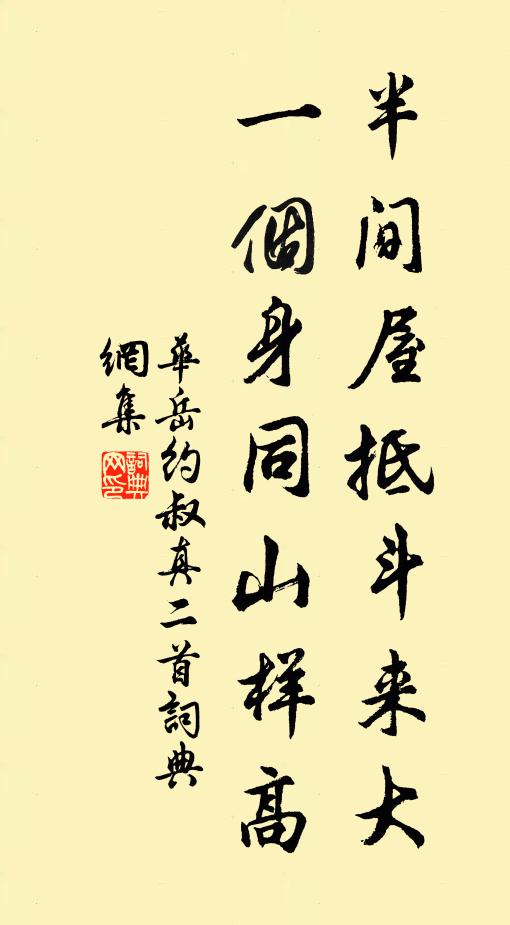 半间屋抵斗来大
一個身同山样高
華岳約叔真二首詞典
網集
詞典网印